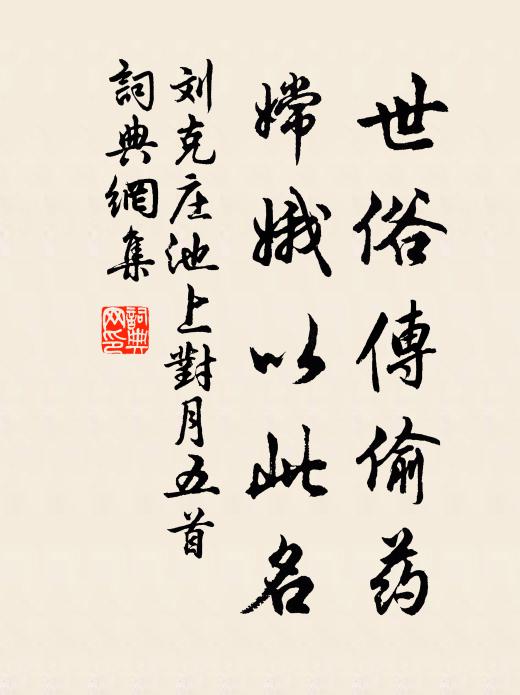 世俗傳偷药
嫦娥以此名
刘克庄池上對月五首
詞典網集
詞典
网印